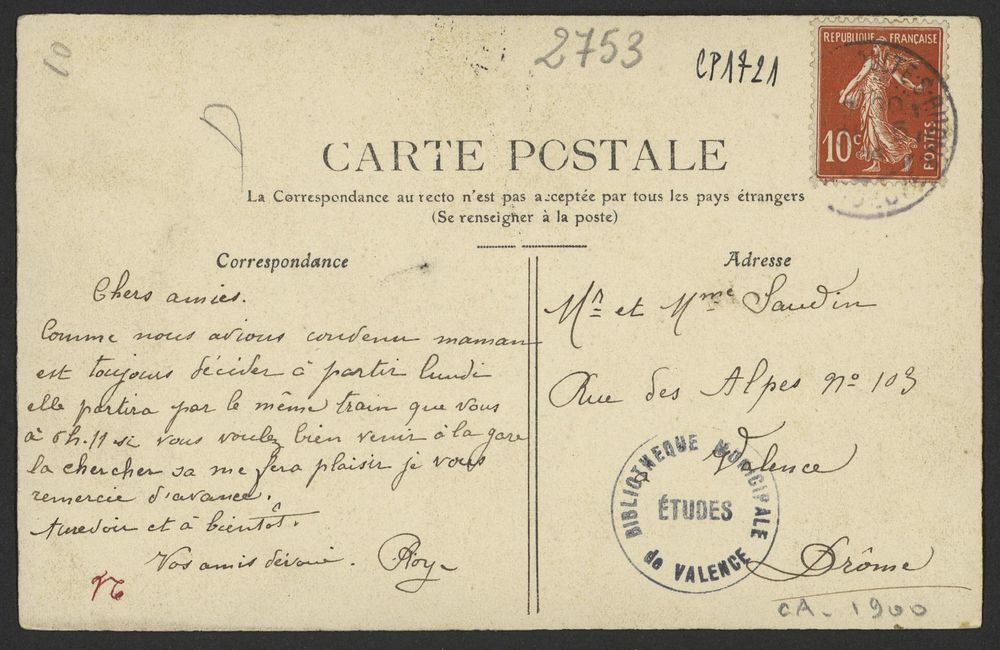 10
2753
CP1721
REPUBLIQUE FRANÇAISE
10c
POSTES
CARTE POSTALE
La Correspondance au recto n'est pas acceptée par tous les pays étrangers
(Se renseigner à la poste)
Correspondance
Chers amies.
Comme nous avions convenu maman
est toujours décider à partir lundi
elle partira par le même train que vous
à 6h.11 si vous voulez bien venir à la gare
la chercher sa me fera plaisir je vous
remercie d'avance.
Aurevoir et à bientôt.
Vos amis dévoué. Roy
Adresse
Mr et Mme Saudin
Rue des Alpes No 103
Valence
Drôme
BIBLIOTHEQUE MUNICIPALE
ÉTUDES
de VALENCE
CA. 1900